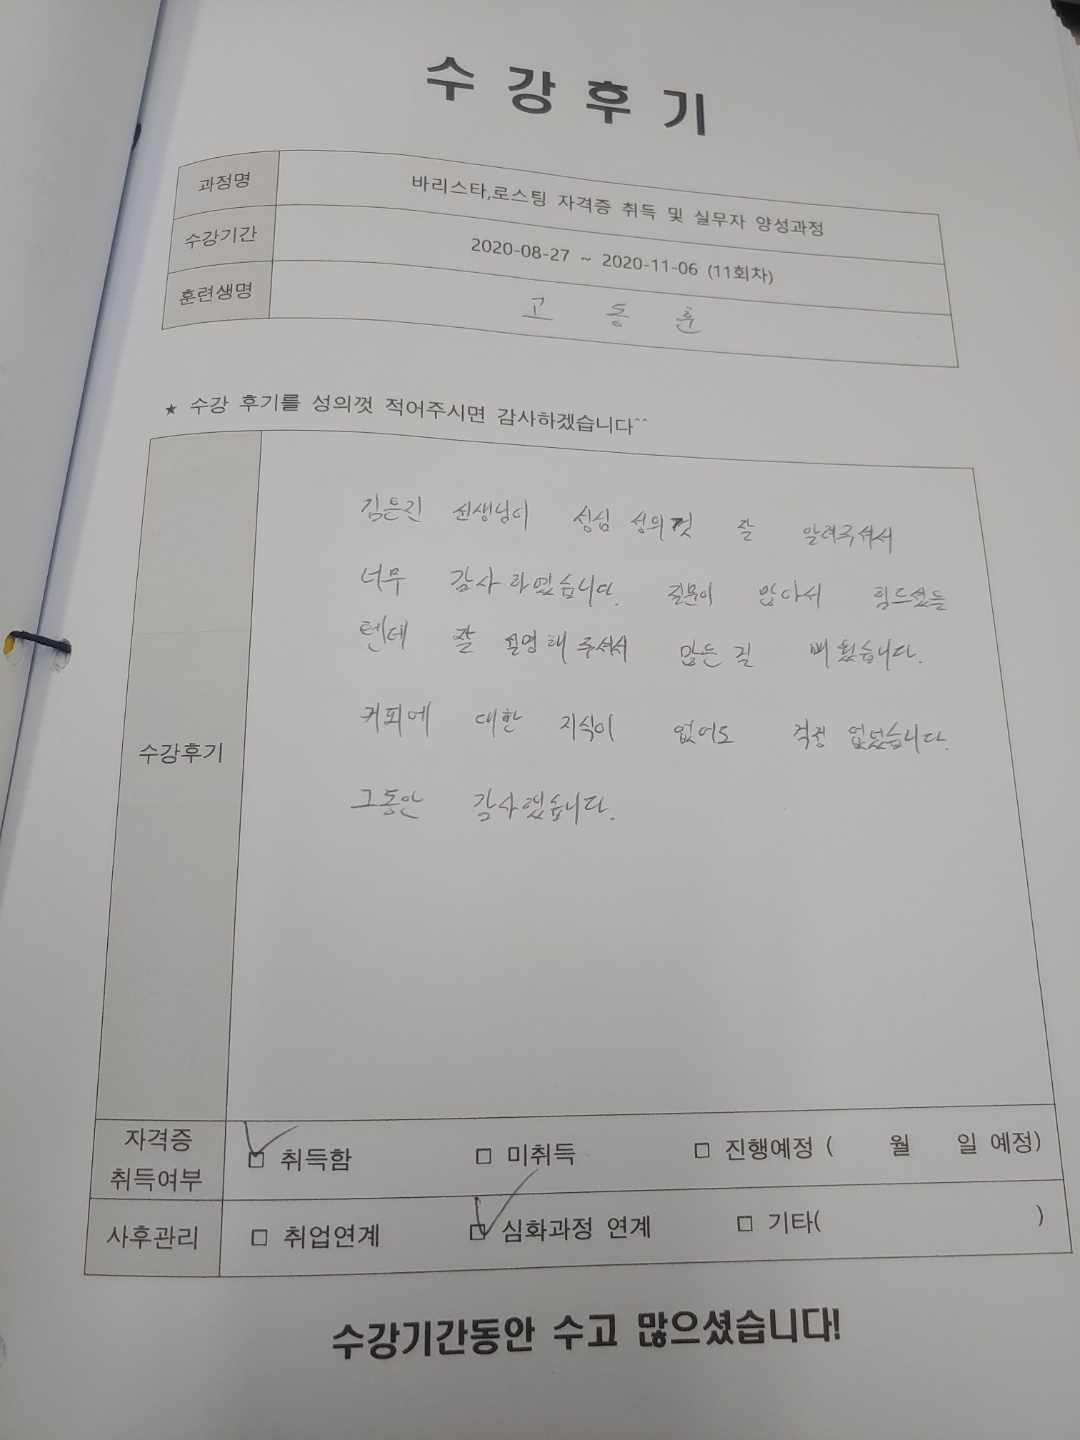 수강후기
과정명 바리스타,로스팅 자격증 취득 및 실무자 양성과정
수강기간 2020-08-27 ~ 2020-11-06 (11회차)
훈련생명 고동훈
★ 수강 후기를 성의껏 적어주시면 감사하겠습니다^^
수강후기
김은진 선생님이 성심 성의껏 잘 알려주셔서
너무 감사하였습니다. 질문이 많아서 힘드셨을
텐데 잘 설명해 주셔서 많은 걸 배웠습니다.
커피에 대한 지식이 없어도 걱정 없었습니다.
그동안 감사했습니다.
자격증
취득여부
☑ 취득함 □ 미취득 □ 진행예정 ( 월 일 예정)
사후관리 □ 취업연계 ☑ 심화과정 연계 □ 기타( )
수강기간동안 수고 많으셨습니다!